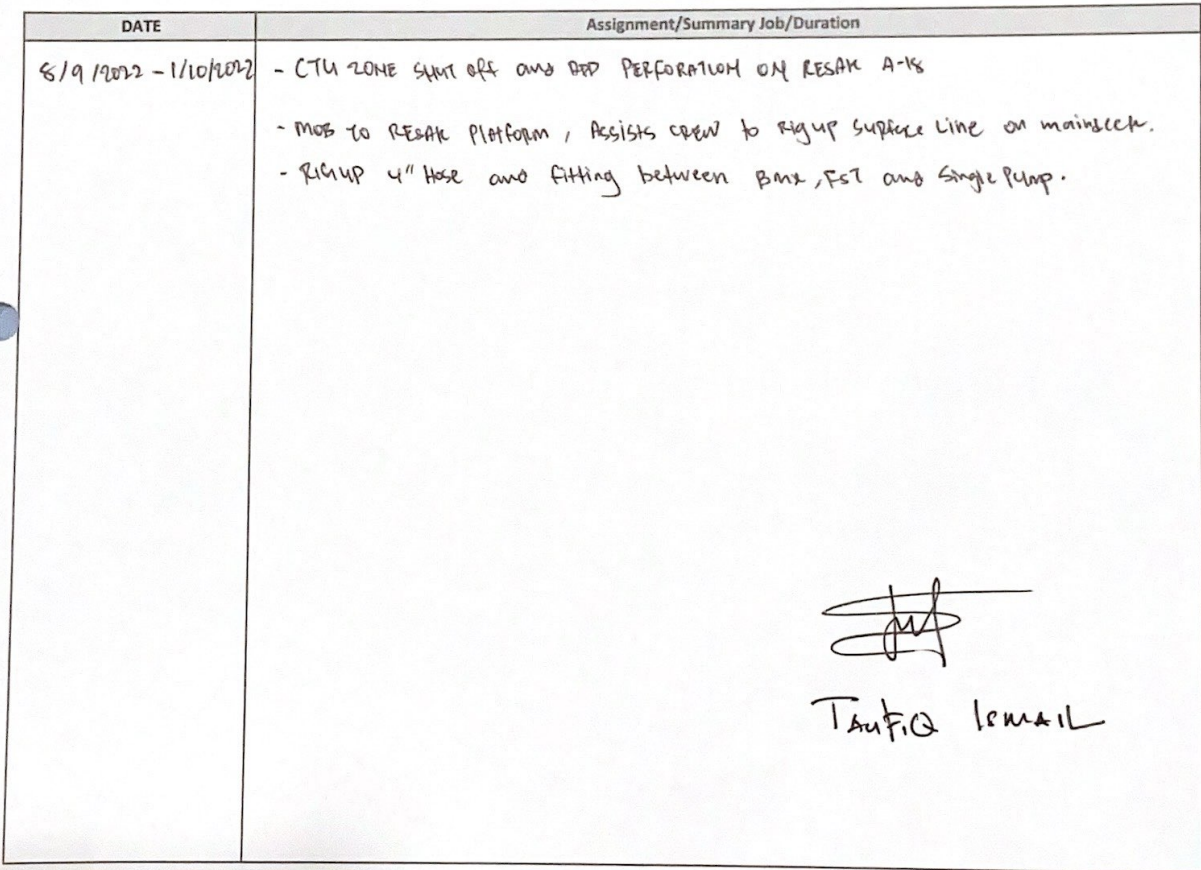 DATE
Assignment/Summary Job/Duration
8/9/2022 - 1/10/2022
- CTU ZONE SHUT OFF and ADD PERFORATION ON RESAK A-18
- MOB TO RESAK Platform, Assists CREW to Rigup Surface Line on maindeck.
- RIGUP 4" Hose and Fitting between Bmx, FST and Single Pump.
TAUFIQ ISMAIL